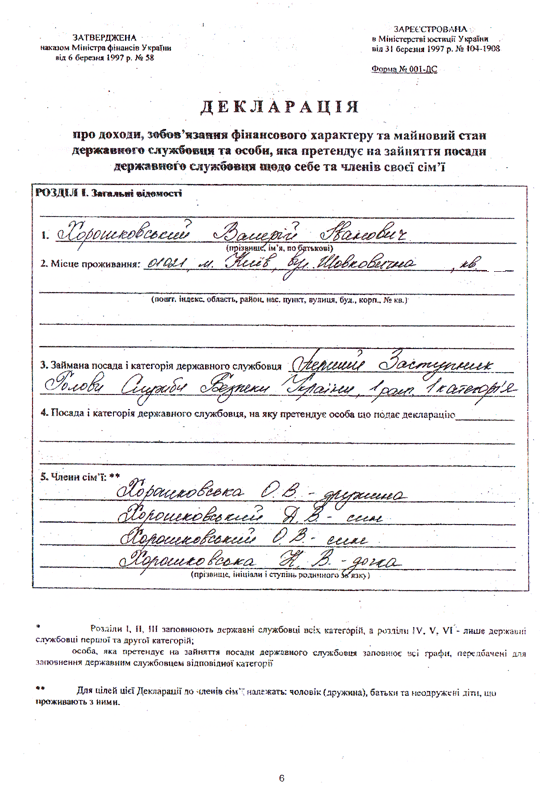 ЗАТВЕРДЖЕНА
наказом Міністра фінансів України
від 6 березня 1997 р. № 58
ЗАРЕЄСТРОВАНА
в Міністерстві юстиції України
від 31 березня 1997 р. № 104-1908
Форма № 001-ДС
ДЕКЛАРАЦІЯ
про доходи, зобов'язання фінансового характеру та майновий стан
державного службовця та особи, яка претендує на зайняття посади
державного службовця щодо себе та членів своєї сім'ї
РОЗДІЛ I. Загальні відомості
1. Хорошковський Валерій Іванович
(прізвище, ім'я, по батькові)
2. Місце проживання: 01021, м. Київ, вул. Шовковична , кв.
(пошт. індекс, область, район, нас. пункт, вулиця, буд., корп., № кв.)
3. Займана посада і категорія державного службовця Перший Заступник
Голови Служби Безпеки України, 1 ранг, 1 категорія
4. Посада і категорія державного службовця, на яку претендує особа що подає декларацію
5. Члени сім'ї: **
Хорошковська О.В. - дружина
Хорошковський Д.В. - син
Хорошковський О.В. - син
Хорошковська Н.В. - дочка
(прізвище, ініціали і ступінь родинного зв'язку)
* Розділи I, II, III заповнюють державні службовці всіх категорій, а розділи IV, V, VI - лише державні
службовці першої та другої категорій;
особа, яка претендує на зайняття посади державного службовця заповнює всі графи, передбачені для
заповнення державним службовцем відповідної категорії
** Для цілей цієї Декларації до членів сім'ї належать: чоловік (дружина), батьки та неодружені діти, що
проживають з ними.
6